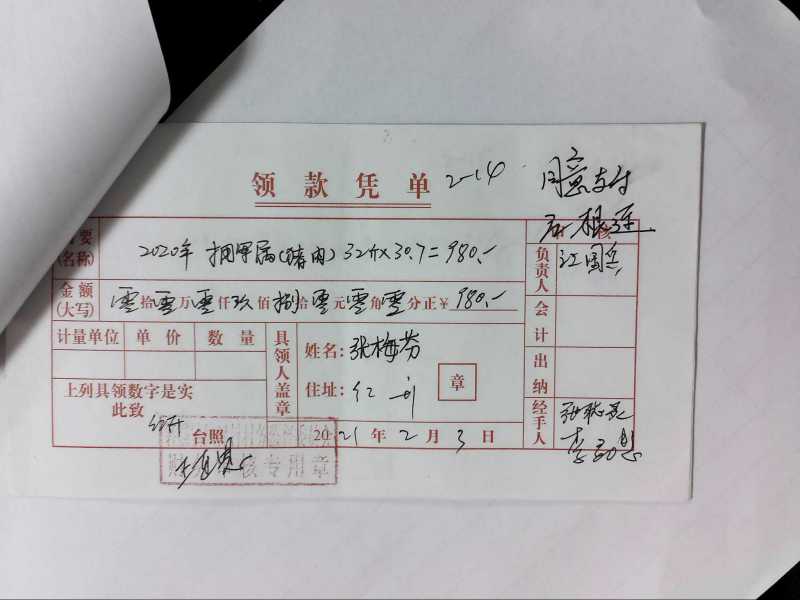 领款凭单 2-14
同意支付
要
(名称) 2020年 拥军属(猪肉) 32斤×30.7=980.-
金额
(大写) 零拾零万零仟玖佰捌拾零元零角零分正¥ 980.-
计量单位 单价 数量
具领人盖章
姓名: 张梅芬
住址: 红
章
上列具领数字是实
此致
台照
2021年2月3日
负责人 江国兵
会计
出纳
经手人
专用章